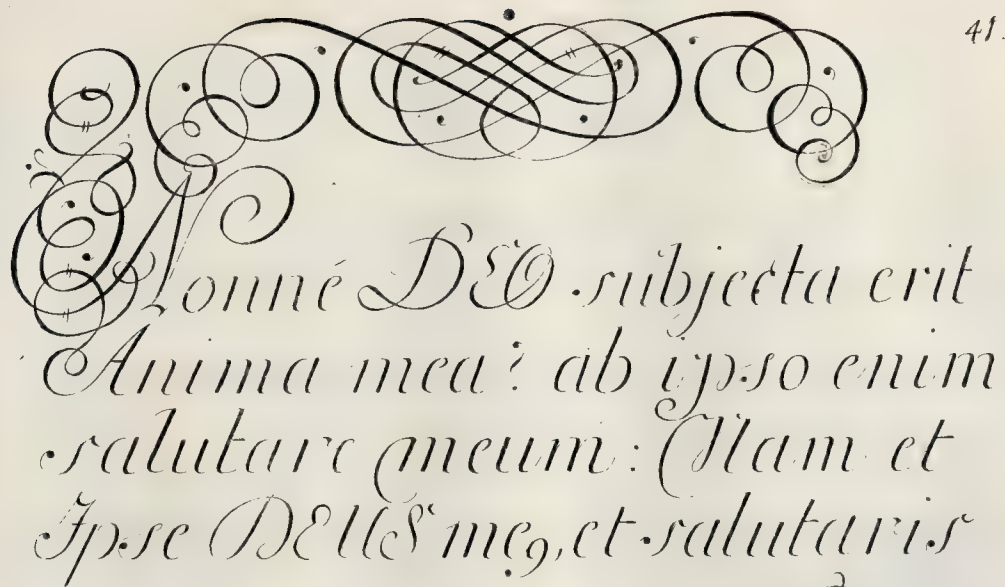 41.
Nonné DEO subjecta erit
Anima mea? ab ipso enim
salutare meum: Nam et
Ipse DEUS meꝰ, et salutaris